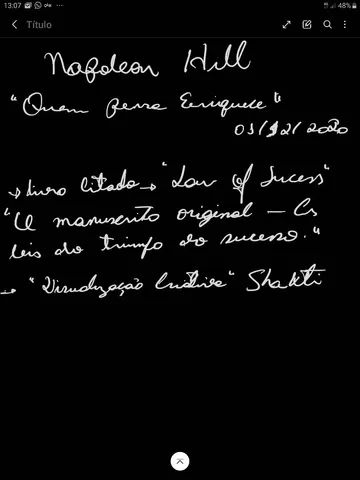 13:07
48%
Título
Napoleon Hill
"Quem pensa Enriquece"
03/12/2020
→ livro citado → "Law of Sucess"
"O manuscrito original - As
leis do triunfo do sucesso."
→ "Visualização Criativa" Shakti